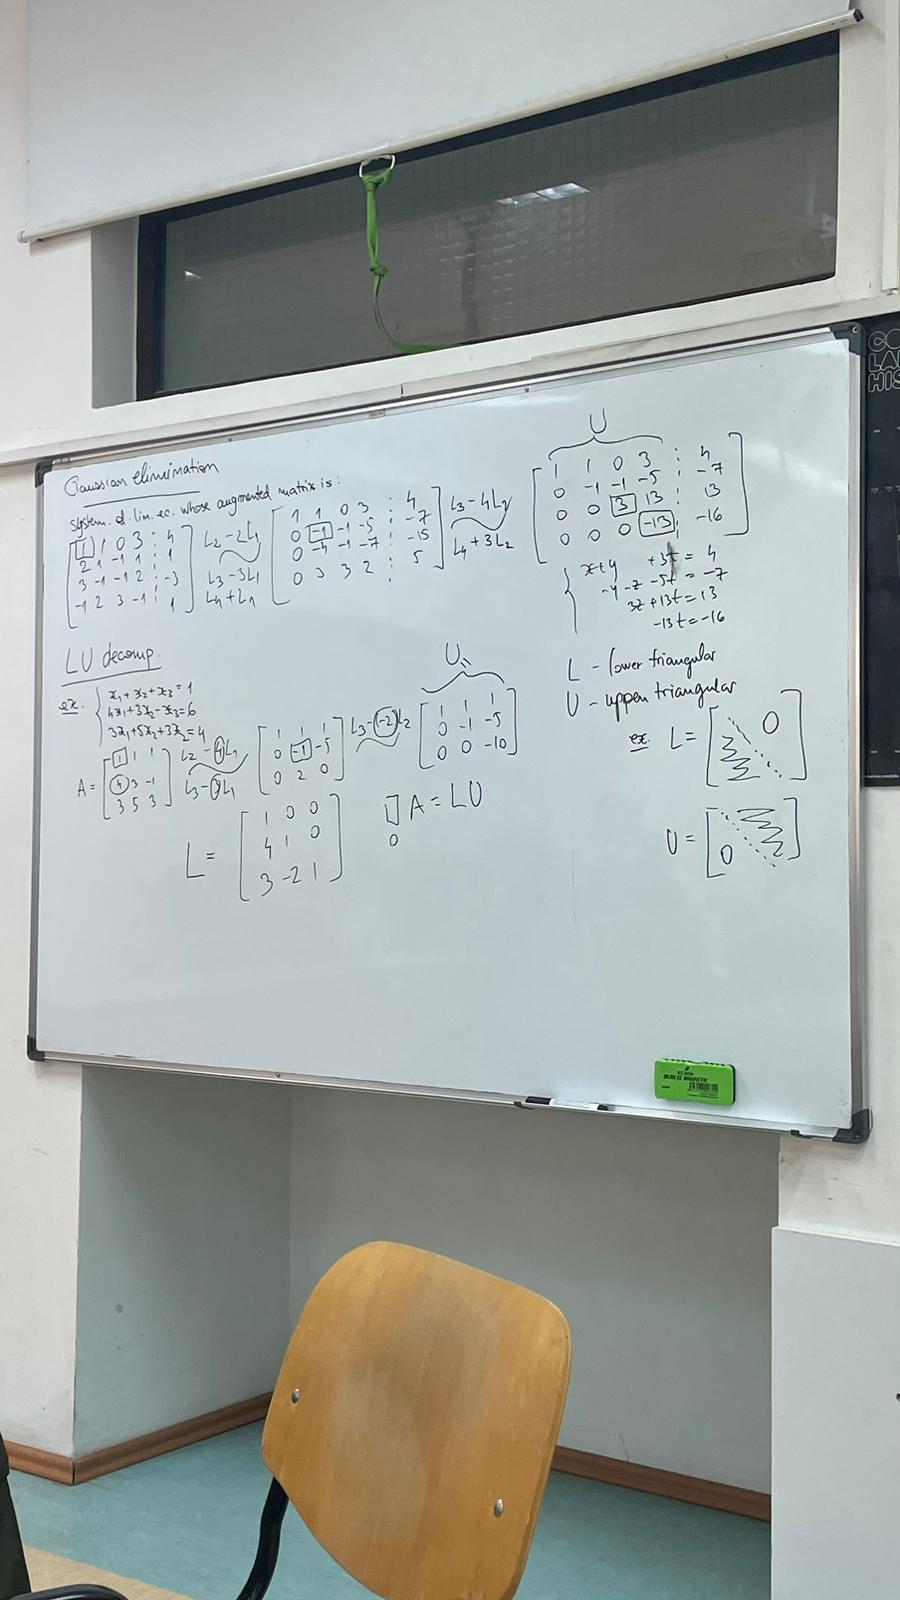 Gaussian elimination
system of lin. ec. whose augmented matrix is:
[1 1 0 3 : 4
2 1 -1 1 : 1
3 -1 -1 2 : -3
-1 2 3 -1 : 1]
L2 - 2L1
L3 - 3L1
L4 + L1
[1 1 0 3 : 4
0 -1 -1 -5 : -7
0 -4 -1 -7 : -15
0 3 3 2 : 5]
L3 - 4L2
L4 + 3L2
U
[1 1 0 3 : 4
0 -1 -1 -5 : -7
0 0 3 13 : 13
0 0 0 -13 : -16]
x+y +3t = 4
-y -z -5t = -7
3z +13t = 13
-13t = -16
LU decomp.
ex.
x1 + x2 + x3 = 1
4x1 + 3x2 - x3 = 6
3x1 + 5x2 + 3x3 = 4
A = [1 1 1
4 3 -1
3 5 3]
L2 - 4L1
L3 - 3L1
[1 1 1
0 -1 -5
0 2 0]
L3 - (-2)L2
U =
[1 1 1
0 -1 -5
0 0 -10]
L = [1 0 0
4 1 0
3 -2 1]
A = LU
0
L - lower triangular
U - upper triangular
ex. L = [0]
U = [0]
CO
LA
HIS
BURETE MAGNETIC